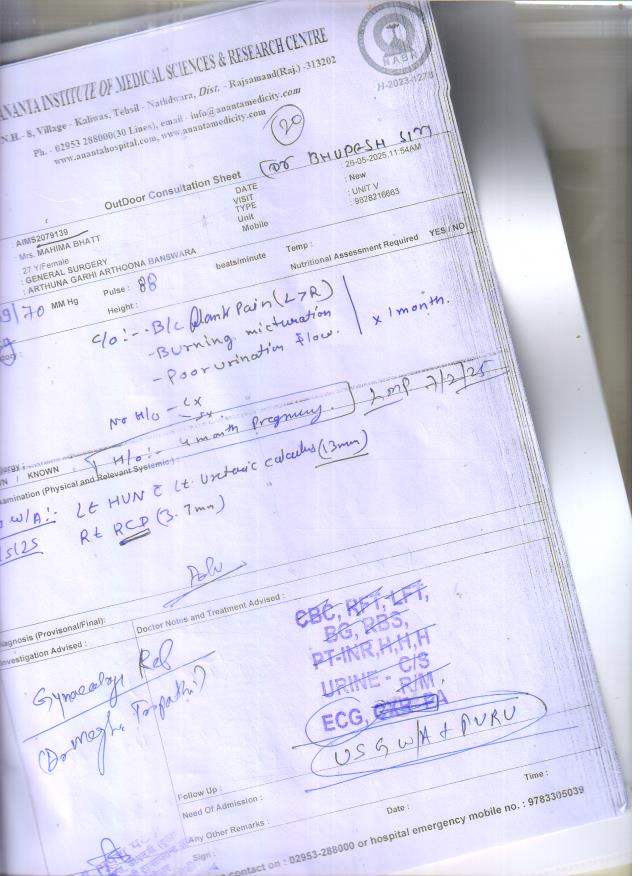 ANANTA INSTITUTE OF MEDICAL SCIENCES & RESEARCH CENTRE
N.H.- 8, Village - Kaliwas, Tehsil - Nathdwara, Dist. - Rajsamand(Raj.) -313202
Ph. - 02953 288000(30 Lines), email - info@anantamedicity.com
www.anantahospital.com, www.anantamedicity.com
NABH
H-2023-1276
20
OutDoor Consultation Sheet
Dr BHUPESH
AIMS2079139
: Mrs. MAHIMA BHATT
27 Y/Female
: GENERAL SURGERY
: ARTHUNA GARHI ARTHOONA BANSWARA
DATE : 26-05-2025,11:54AM
VISIT : New
TYPE
Unit : UNIT V
Mobile : 9828216663
/70 MM Hg Pulse : 88 beats/minute Temp :
Height : Nutritional Assessment Required YES / NO
C/O :- - B/L flank Pain (L>R)
- Burning micturation
- Poor urination flow.
x 1 month.
No H/O -
H/O :- 4 month Pregnency. LMP 7/2/25
N / KNOWN :
xamination (Physical and Relevant Systemic) :
W/A :- Lt HUN c Lt Ureteric calculus (13mm)
/5/25 Rt RCD (3.7mm)
Adv
iagnosis (Provisonal/Final):
nvestigation Advised :
Doctor Notes and Treatment Advised :
Gynaecology Ref
(Dr Megha Tripathi)
CBC, RFT, LFT,
BG, RBS,
PT-INR,H,H,H
URINE - C/S
R/M,
ECG, CXR-PA
USG W/A + PVRU
Follow Up :
Need Of Admission :
Any Other Remarks :
Date :
Time :
Sign :
contact on : 02953-288000 or hospital emergency mobile no. : 9783305039